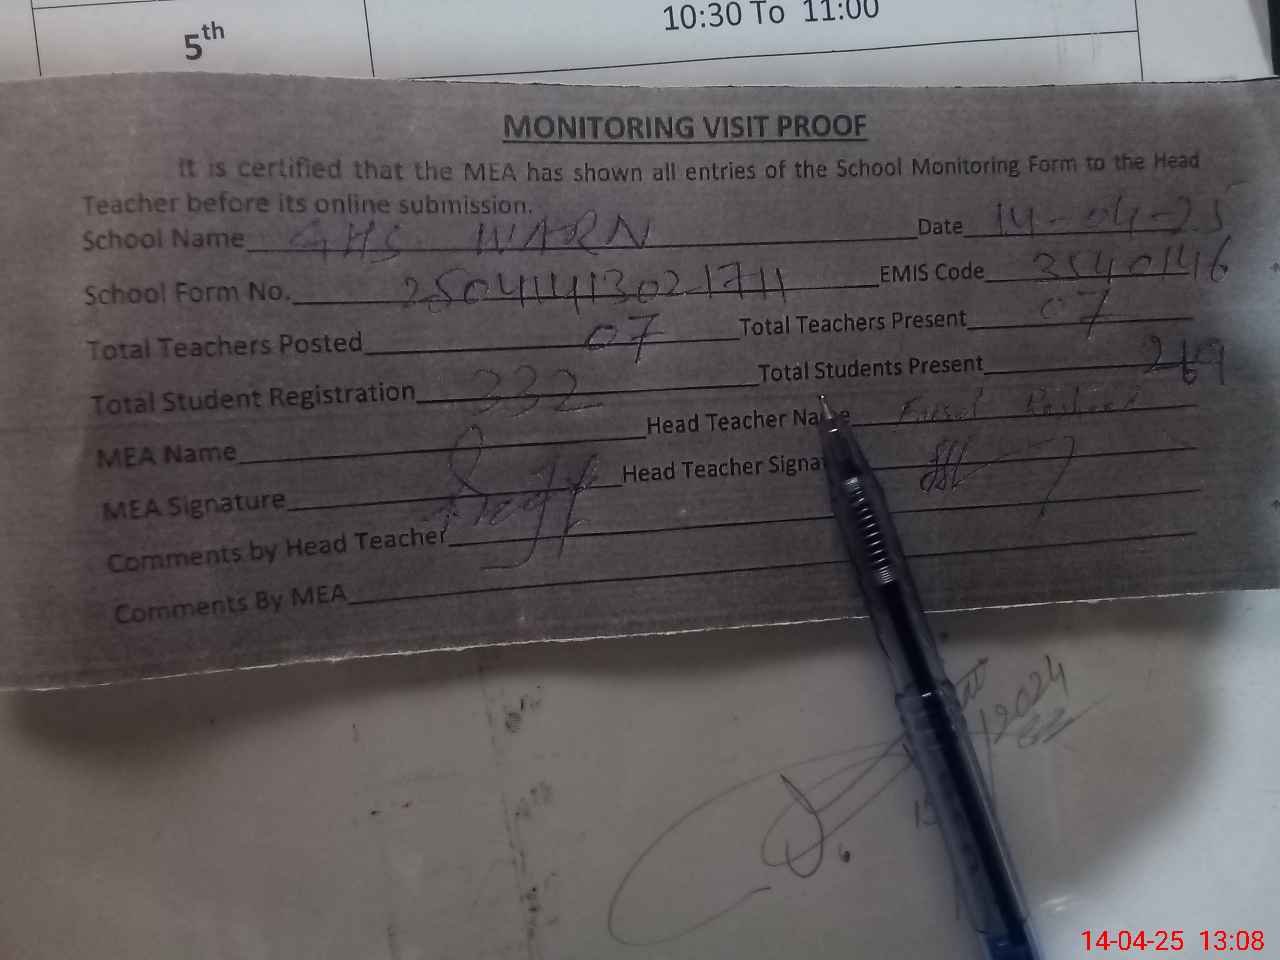 5th 10:30 To 11:00
MONITORING VISIT PROOF
It is certified that the MEA has shown all entries of the School Monitoring Form to the Head
Teacher before its online submission.
School Name GHS WARN Date 14-04-25
School Form No. 250411413021711 EMIS Code 3540146
Total Teachers Posted 07 Total Teachers Present 07
Total Student Registration 332 Total Students Present 269
MEA Name Head Teacher Name
MEA Signature Head Teacher Signa
Comments by Head Teacher
Comments By MEA
2024
14-04-25 13:08